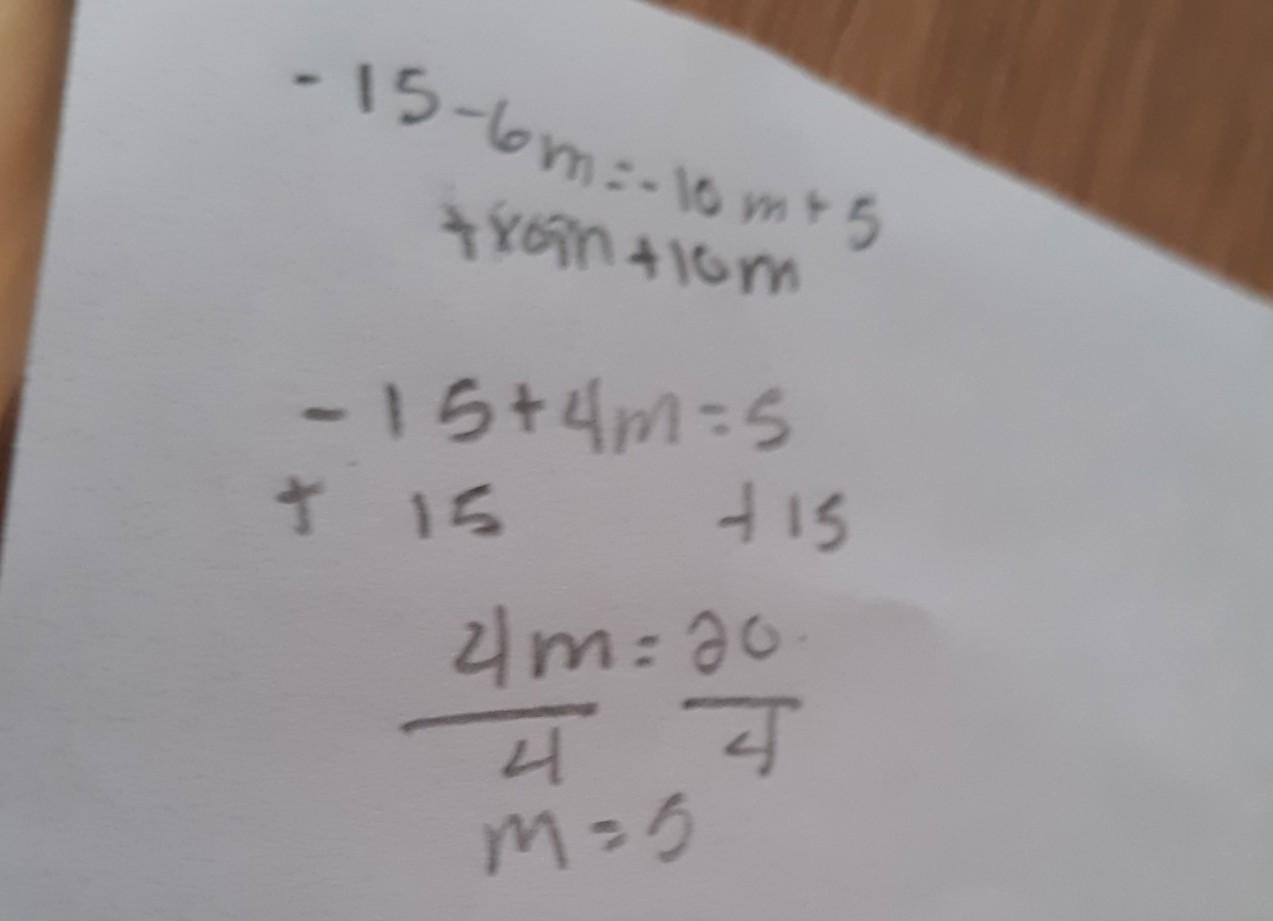 -15-6m=-10m+5
+10m+10m
-15+4m=5
+ 15 +15
4m=20
4 4
m=5